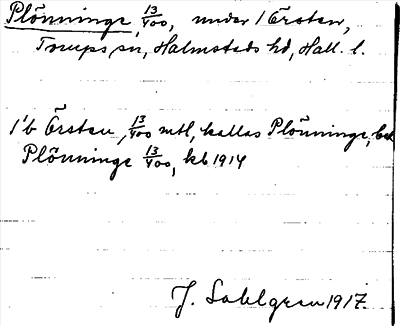 Plönninge, 13/400, under 1 Örsten,
Trumps sn, Halmstads hd, Hall. l.
1'b Örsten, 13/400 mtl, kallas Plönninge, bed
Plönninge 13/400, kb 1914
J. Sahlgren 1917.